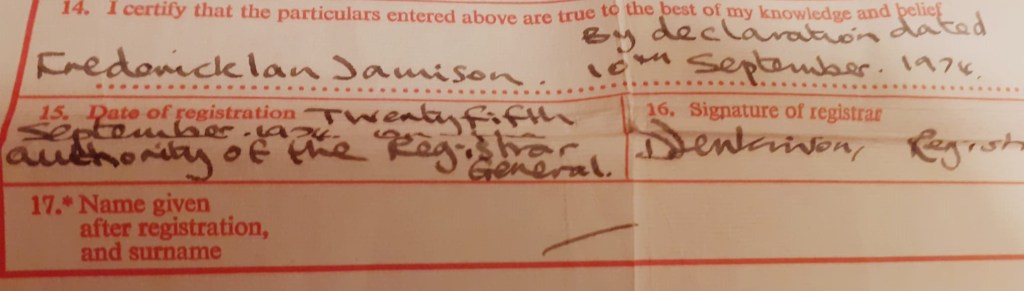 14. I certify that the particulars entered above are true to the best of my knowledge and belief
By declaration dated
Frederick Ian Jamison. 10th September. 1974.
15. Date of registration Twenty fifth
September. 1974. on the
authority of the Registrar
General.
16. Signature of registrar
Registr
17.* Name given
after registration,
and surname